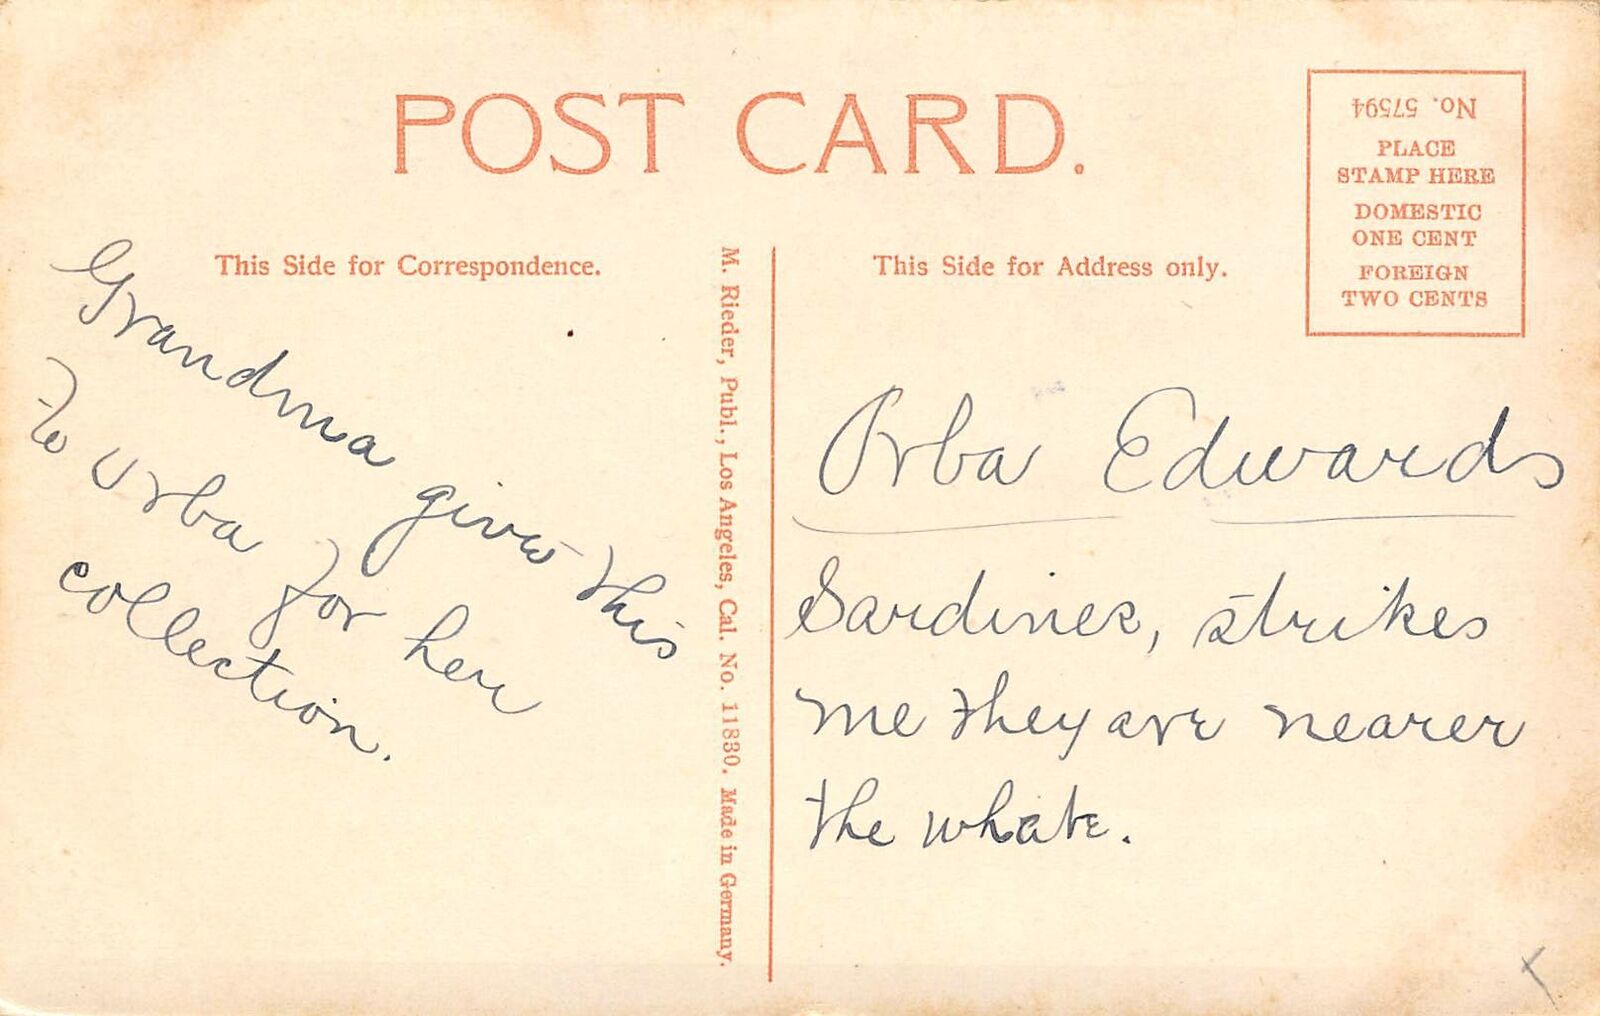 POST CARD.
No. 57594
PLACE
STAMP HERE
DOMESTIC
ONE CENT
FOREIGN
TWO CENTS
This Side for Correspondence.
This Side for Address only.
M. Rieder, Publ., Los Angeles, Cal. No. 11830. Made in Germany.
Grandma gives this
to Orba for her
collection.
Orba Edwards
Sardines, strikes
me they are nearer
the